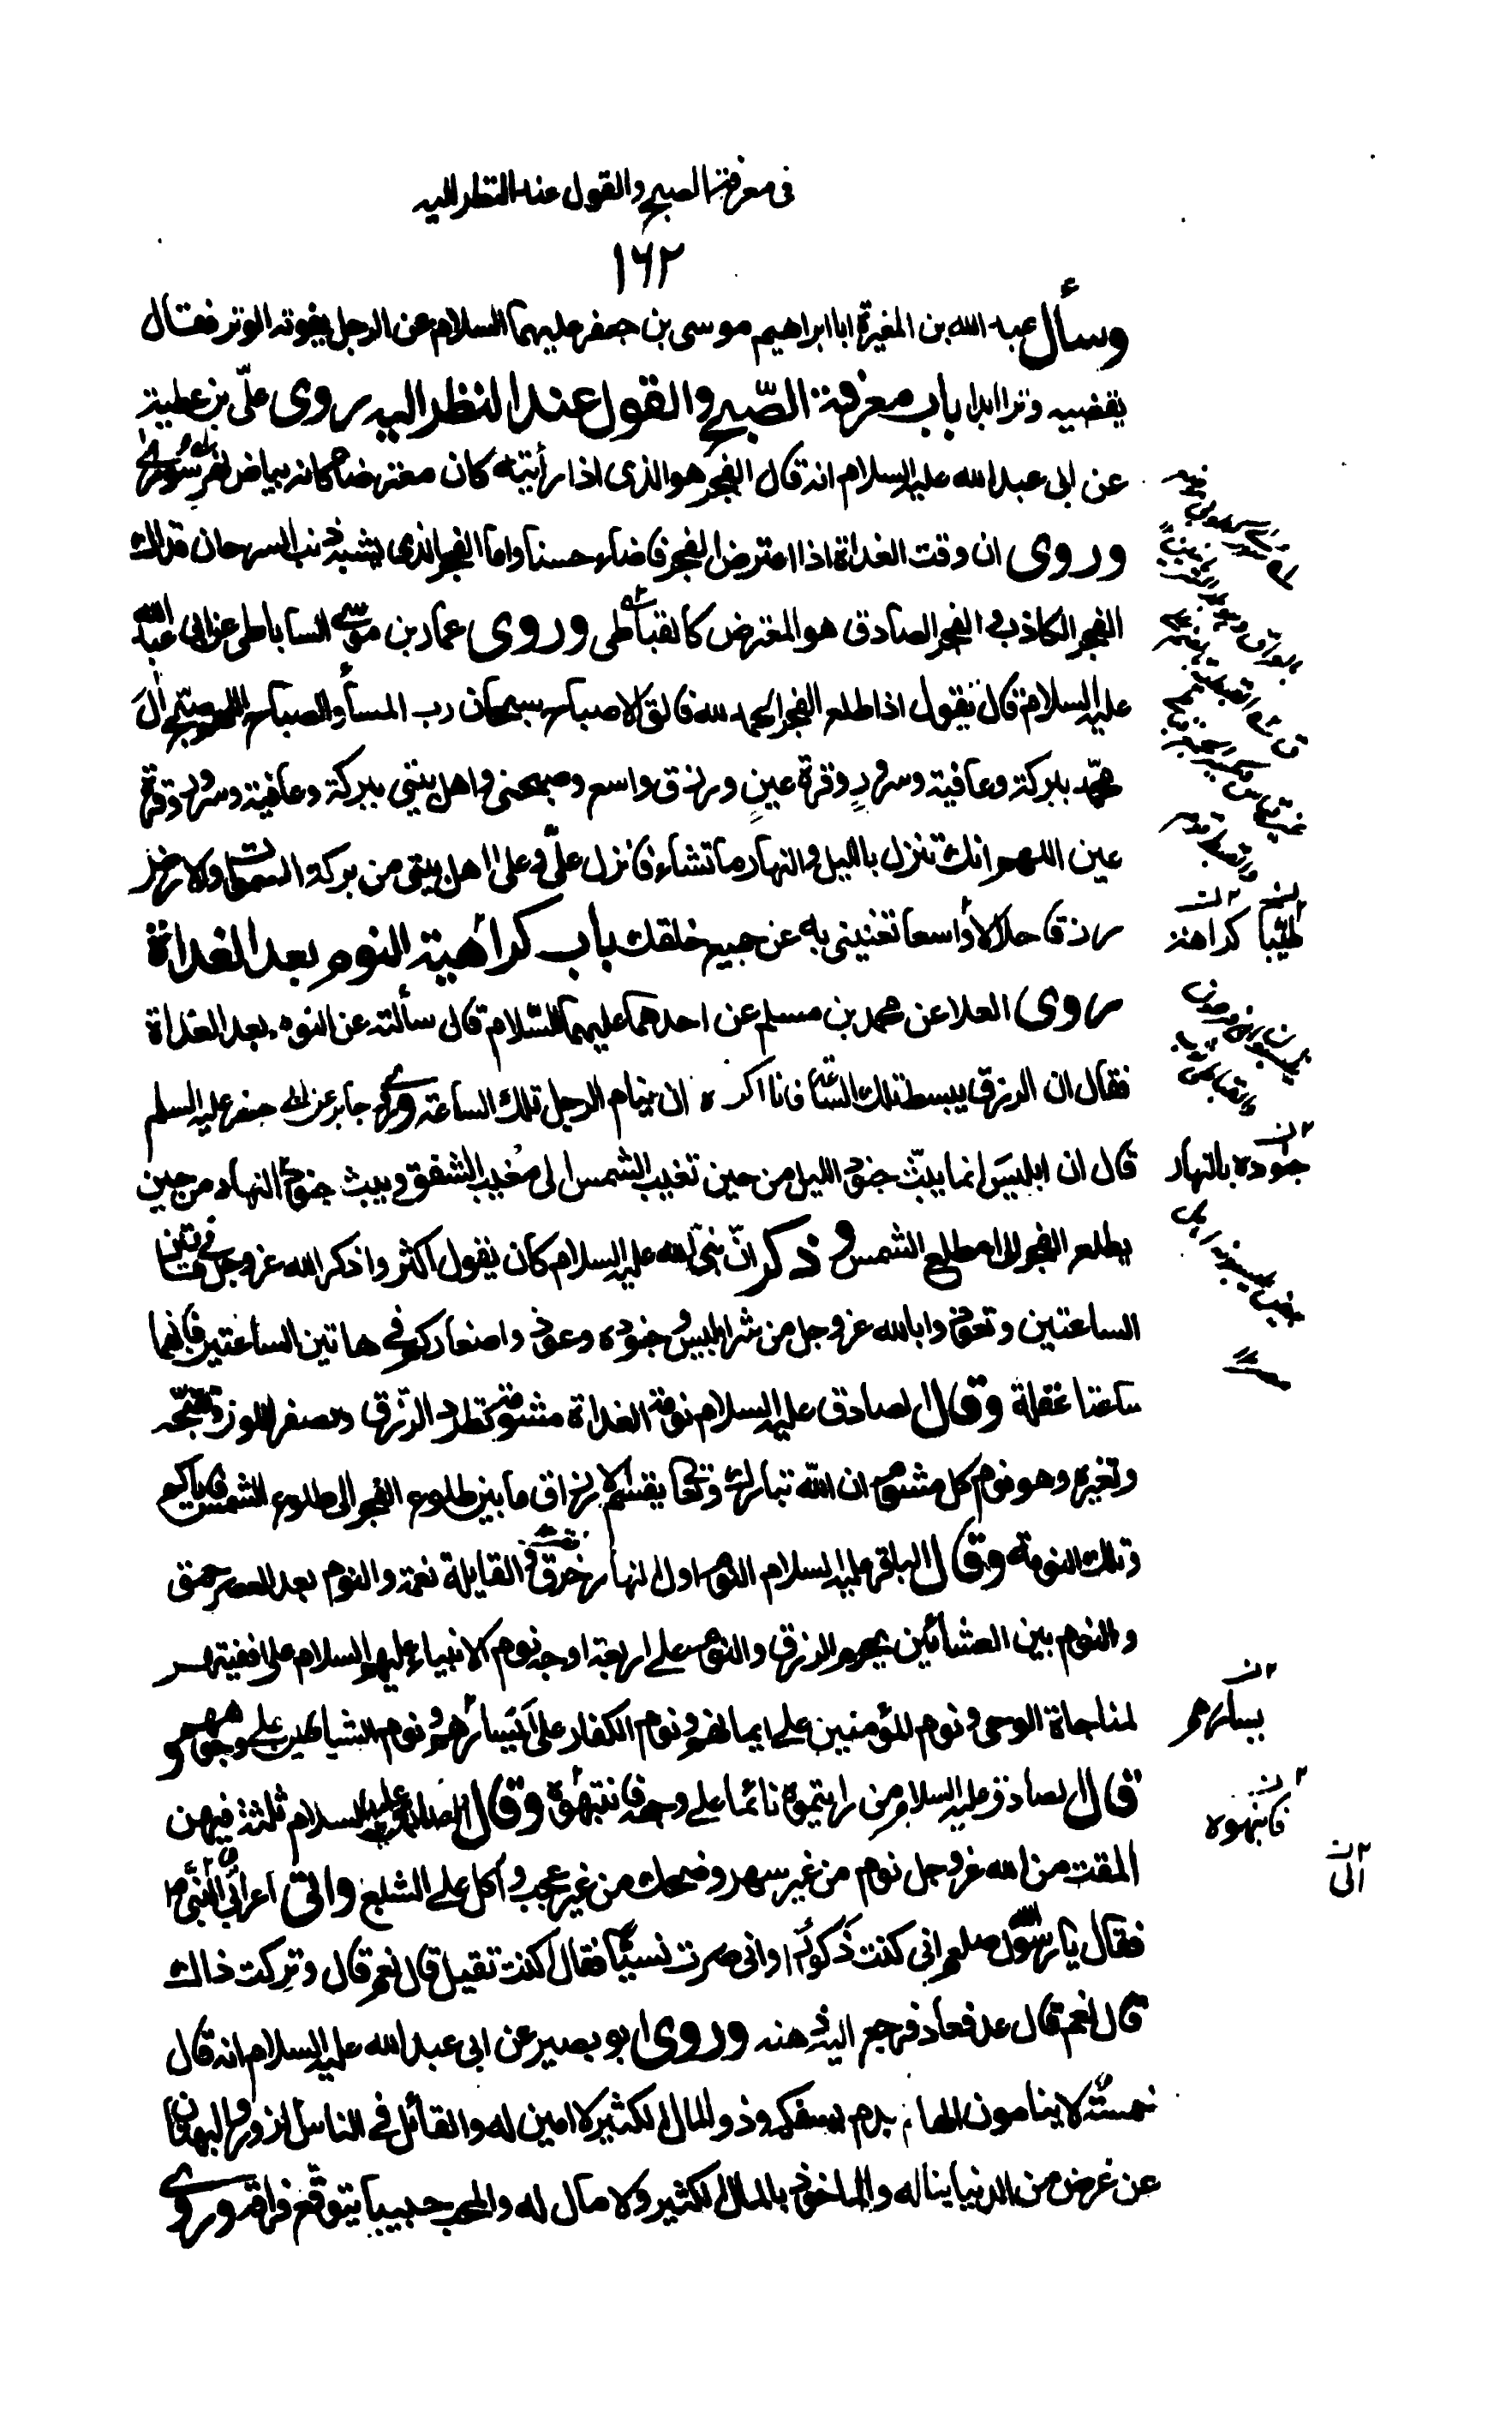 في معرفة الصبح والقول عند النظر اليه
١٦٢
وسأل عبد الله بن المغيرة ابا ابراهيم موسى بن جعفر عليهما السلام عن الرجل يفوته الوتر فقال
يقضيه وترا ابدا باب معرفة الصّبح والقول عند النظر اليه روى علىّ بن عطية
عن ابى عبد الله عليه السلام انه قال الفجر هو الذى اذا رأيته كان معترضا كانه بياض نهر سورا
وروى ان وقت الغداة اذا اعترض الفجر فاضاء حسنا واما الفجر الذى يشبه ذنب السرحان فذلك
الفجر الكاذب و الفجر الصادق هو المعترض كالقباطى وروى عمار بن موسى الساباطى عن ابى عبد الله
عليه السلام قال تقول اذا طلع الفجر الحمد لله فالق الاصباح سبحان رب المساء والصباح اللهم صبح ال
محمد ببركة وعافية وسرورٍ وقرة عينٍ ورزق واسع وصبحنى و اهل بيتى ببركة وعافية وسرور وقرة
عين اللهم انك تنزل بالليل والنهار ما تشاء فانزل علىّ وعلى اهل بيتى من بركة السموات والارض
رزقا حلالا واسعا تغنينى به عن جميع خلقك باب كراهية النوم بعد الغداة
طيبا كراهة
روى العلا عن محمد بن مسلم عن احدهما عليهما السلام قال سألته عن النوم بعد الغداة
فقال ان الرزق يبسط تلك الساعة فانا اكره ان ينام الرجل تلك الساعة وروى جابر عن ابى جعفر عليه السلم
قال ان ابليس انما يبثّ جنود الليل من حين تغيب الشمس الى مغيب الشفق و يبث جنود النهار من حين
جنوده بالنهار
يطلع الفجر الى مطلع الشمس و ذكر انّ نبىّ الله عليه السلام كان يقول اكثروا ذكر الله عز وجل فى هاتين
الساعتين وتعوذوا بالله عز وجل من شر ابليس و جنوده وعوذوا صغاركم فى هاتين الساعتين فانهما
ساعتا غفلة وقال الصادق عليه السلام نومة الغداة مشومة تطرد الرّزق وتصفر اللون وتقبّحه
وتغيره وهو نوم كل مشوم ان الله تبارك وتعالى يقسم الارزاق ما بين طلوع الفجر الى طلوع الشمس فاياكم
وتلك النومة وقال الباقر عليه السلام النوم اول النهار خرق و القايلة نعمة والنوم بعد العصر حمق
والنوم بين العشائين يحرم الرزق والنوم على اربعة اوجه نوم الانبياء عليهم السلام على اقفيتهم
لمناجاة الوحى و نوم المؤمنين على ايمانهم و نوم الكفار على يسارهم و نوم الشياطين على وجوههم و
يسارهم
قال الصادق عليه السلام من رايتموه نائما على وجهه فانتبهوه وقال الصادق عليه السلام ثلثة فيهن
فانبهوه
المقت من الله عز وجل نوم من غير سهر وضحك من غير عجب و اكل على الشبع واتى اعرابى النبى ص
الى
فقال يا رسول الله صلعم انى كنت ذكورا وانى صرت نسيّا فقال اكنت تقيل قال نعم قال وتركت ذالك
قال نعم قال عد فعاد فرجع اليه ذهنه وروى ابو بصير عن ابى عبد الله عليه السلام انه قال
خمسة لا ينامون الهام بدم يسفكه وذو المال الكثير لا امين له والقائل فى الناس الزور و البهتان
عن عرض من الدنيا يناله والماخوذ بالمال الكثير ولا مال له والمحب حبيبا يتوقع فراقه وروى